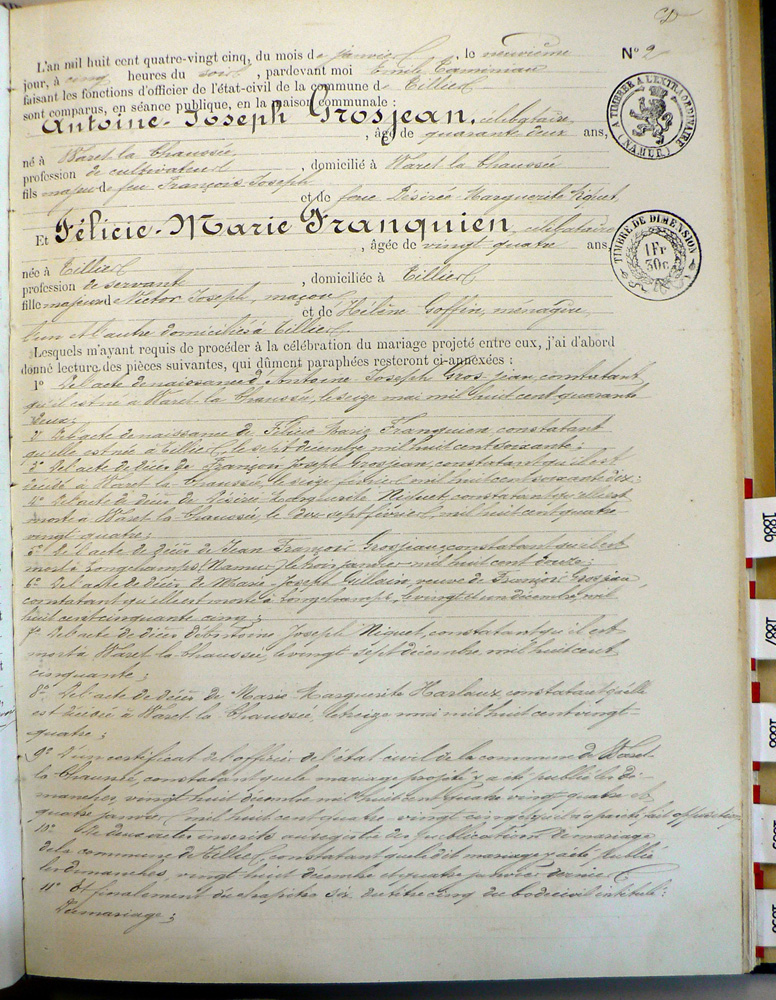 L'an mil huit cent quatre-vingt cinq, du mois de janvier, le neuvième
N° 2
jour, à cinq heures du soir, pardevant moi Emile Taminiau
faisant les fonctions d'officier de l'état-civil de la commune de Tillier
sont comparus, en séance publique, en la maison communale :
Antoine-Joseph Grosjean, célibataire,
, âgé de quarante deux ans,
né à Waret la Chaussée
profession de cultivateur, domicilié à Waret la Chaussée
fils majeur de feu François Joseph
et de feue Désirée Marguerite Niquet
Et Félicie-Marie Franquien, célibataire
, âgée de vingt quatre ans
née à Tillier
profession de servante, domiciliée à Tillier
fille majeure de Victor Joseph, maçon
et de Hélène Goffin, ménagère,
l'un et l'autre domiciliés à Tillier
Lesquels m'ayant requis de procéder à la célébration du mariage projeté entre eux, j'ai d'abord
donné lecture des pièces suivantes, qui dûment paraphées resteront ci-annexées :
1° De l'acte de naissance d'Antoine Joseph Grosjean, constatant
qu'il est né à Waret la Chaussée, le seize mai mil huit cent quarante
deux;
2° De l'acte de naissance de Félicie Marie Franquien, constatant
qu'elle est née à Tillier, le sept décembre mil huit cent soixante;
3° De l'acte de décès de François Joseph Grosjean, constatant qu'il est
décédé à Waret la Chaussée, le seize février mil huit cent soixante dix;
4° De l'acte de décès de Désirée Marguerite Niquet constatant qu'elle est
morte à Waret la Chaussée, le dix sept février, mil huit cent quatre
vingt quatre;
5° De l'acte de décès de Jean François Grosjean, constatant qu'il est
mort à Longchamps (Namur) le trois janvier mil huit cent douze;
6° De l'acte de décès de Marie Joseph, veuve de François Grosjean,
constatant qu'elle est morte à Longchamps, le vingt et un décembre, mil
huit cent cinquante cinq;
7° De l'acte de décès d'Antoine Joseph Niquet, constatant qu'il est
mort à Waret la Chaussée, le vingt sept décembre, mil huit cent
cinquante;
8° De l'acte de décès de Marie Marguerite Harlaux, constatant qu'elle
est décédée à Waret la Chaussée, le treize mai mil huit cent vingt-
quatre;
9° D'un certificat de l'officier de l'état civil de la commune de Waret
la Chaussée, constatant que le mariage projeté y a été publié les di-
manches, vingt huit décembre mil huit cent quatre vingt quatre et
quatre janvier mil huit cent quatre vingt cinq et qu'il n'a pas été fait opposition
10° De deux actes inscrits au registre des publications de mariage
de la commune de Tillier, constatant que le dit mariage y a été publié
les dimanches, vingt huit décembre et quatre janvier dernier
11° Et finalement du chapitre six, du titre cinq du code civil intitulé:
Du mariage;
TIMBRE A L'EXTRAORDINAIRE
(NAMUR)
TIMBRE DE DIMENSION
1Fr
30c
1886
1887
1888